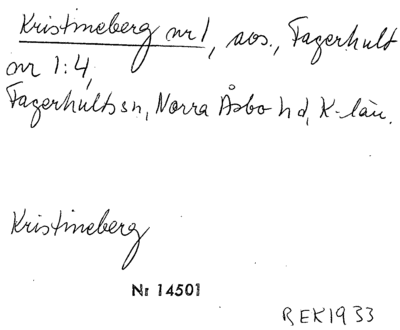 Kristineberg nr 1, avs., Fagerhult
nr 1:4,
Fagerhults sn, Norra Åsbo hd, K-län.
Kristineberg
Nr 14501
REK 1933